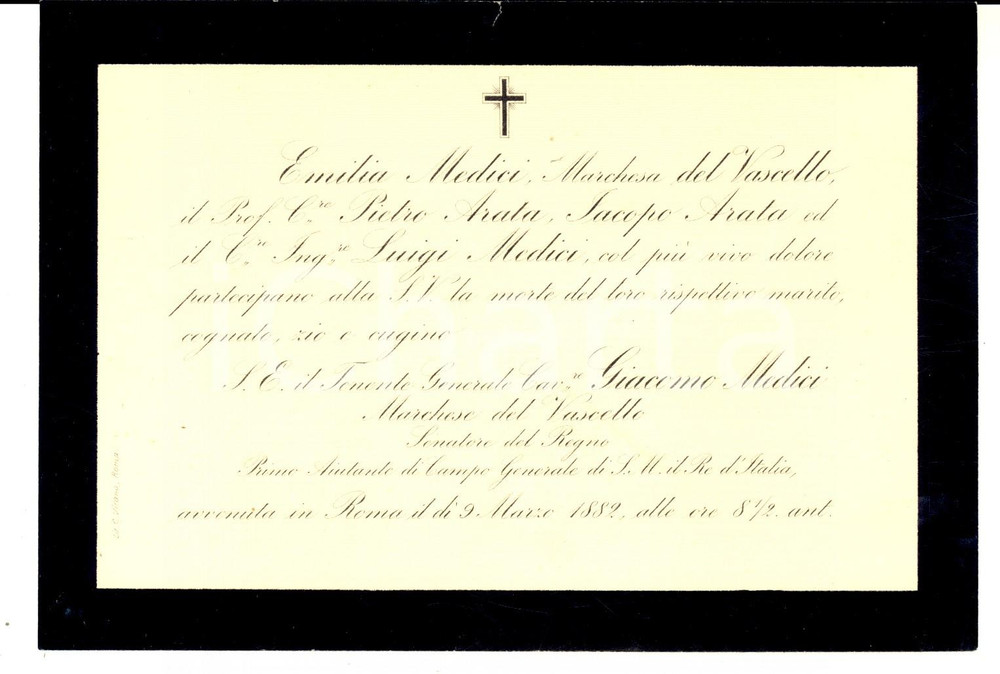 Emilia Medici, Marchesa del Vascello,
il Prof. C.re Pietro Arata, Iacopo Arata ed
il C.re Ing.re Luigi Medici, col più vivo dolore
partecipano alla S. V. la morte del loro rispettivo marito,
cognato, zio e cugino
S. E. il Tenente Generale Cav.re Giacomo Medici
Marchese del Vascello
Senatore del Regno
Primo Aiutante di Campo Generale di S. M. il Re d'Italia,
avvenuta in Roma il dì 9 Marzo 1882, alle ore 8 1/2 ant.